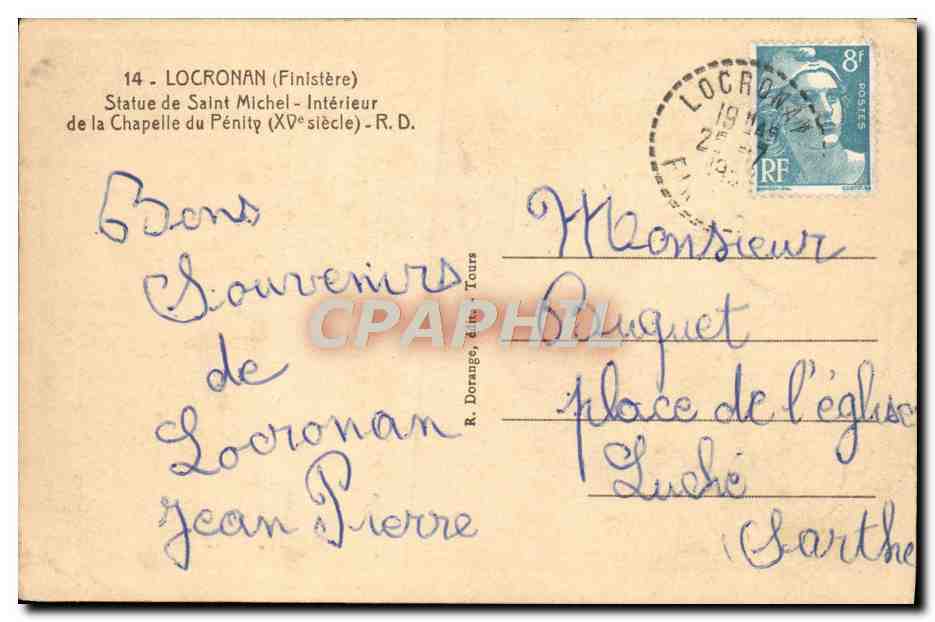 14 - LOCRONAN (Finistère)
Statue de Saint Michel - Intérieur
de la Chapelle du Pénity (XVe siècle) - R. D.
Bons
Souvenirs
de
Locronan
Jean Pierre
R. Dorange, édit. - Tours
CPAPHIL
LOCRONAN
19 H
8f
POSTES
RF
Monsieur
Bouquet
place de l'église
Luché
Sarthe